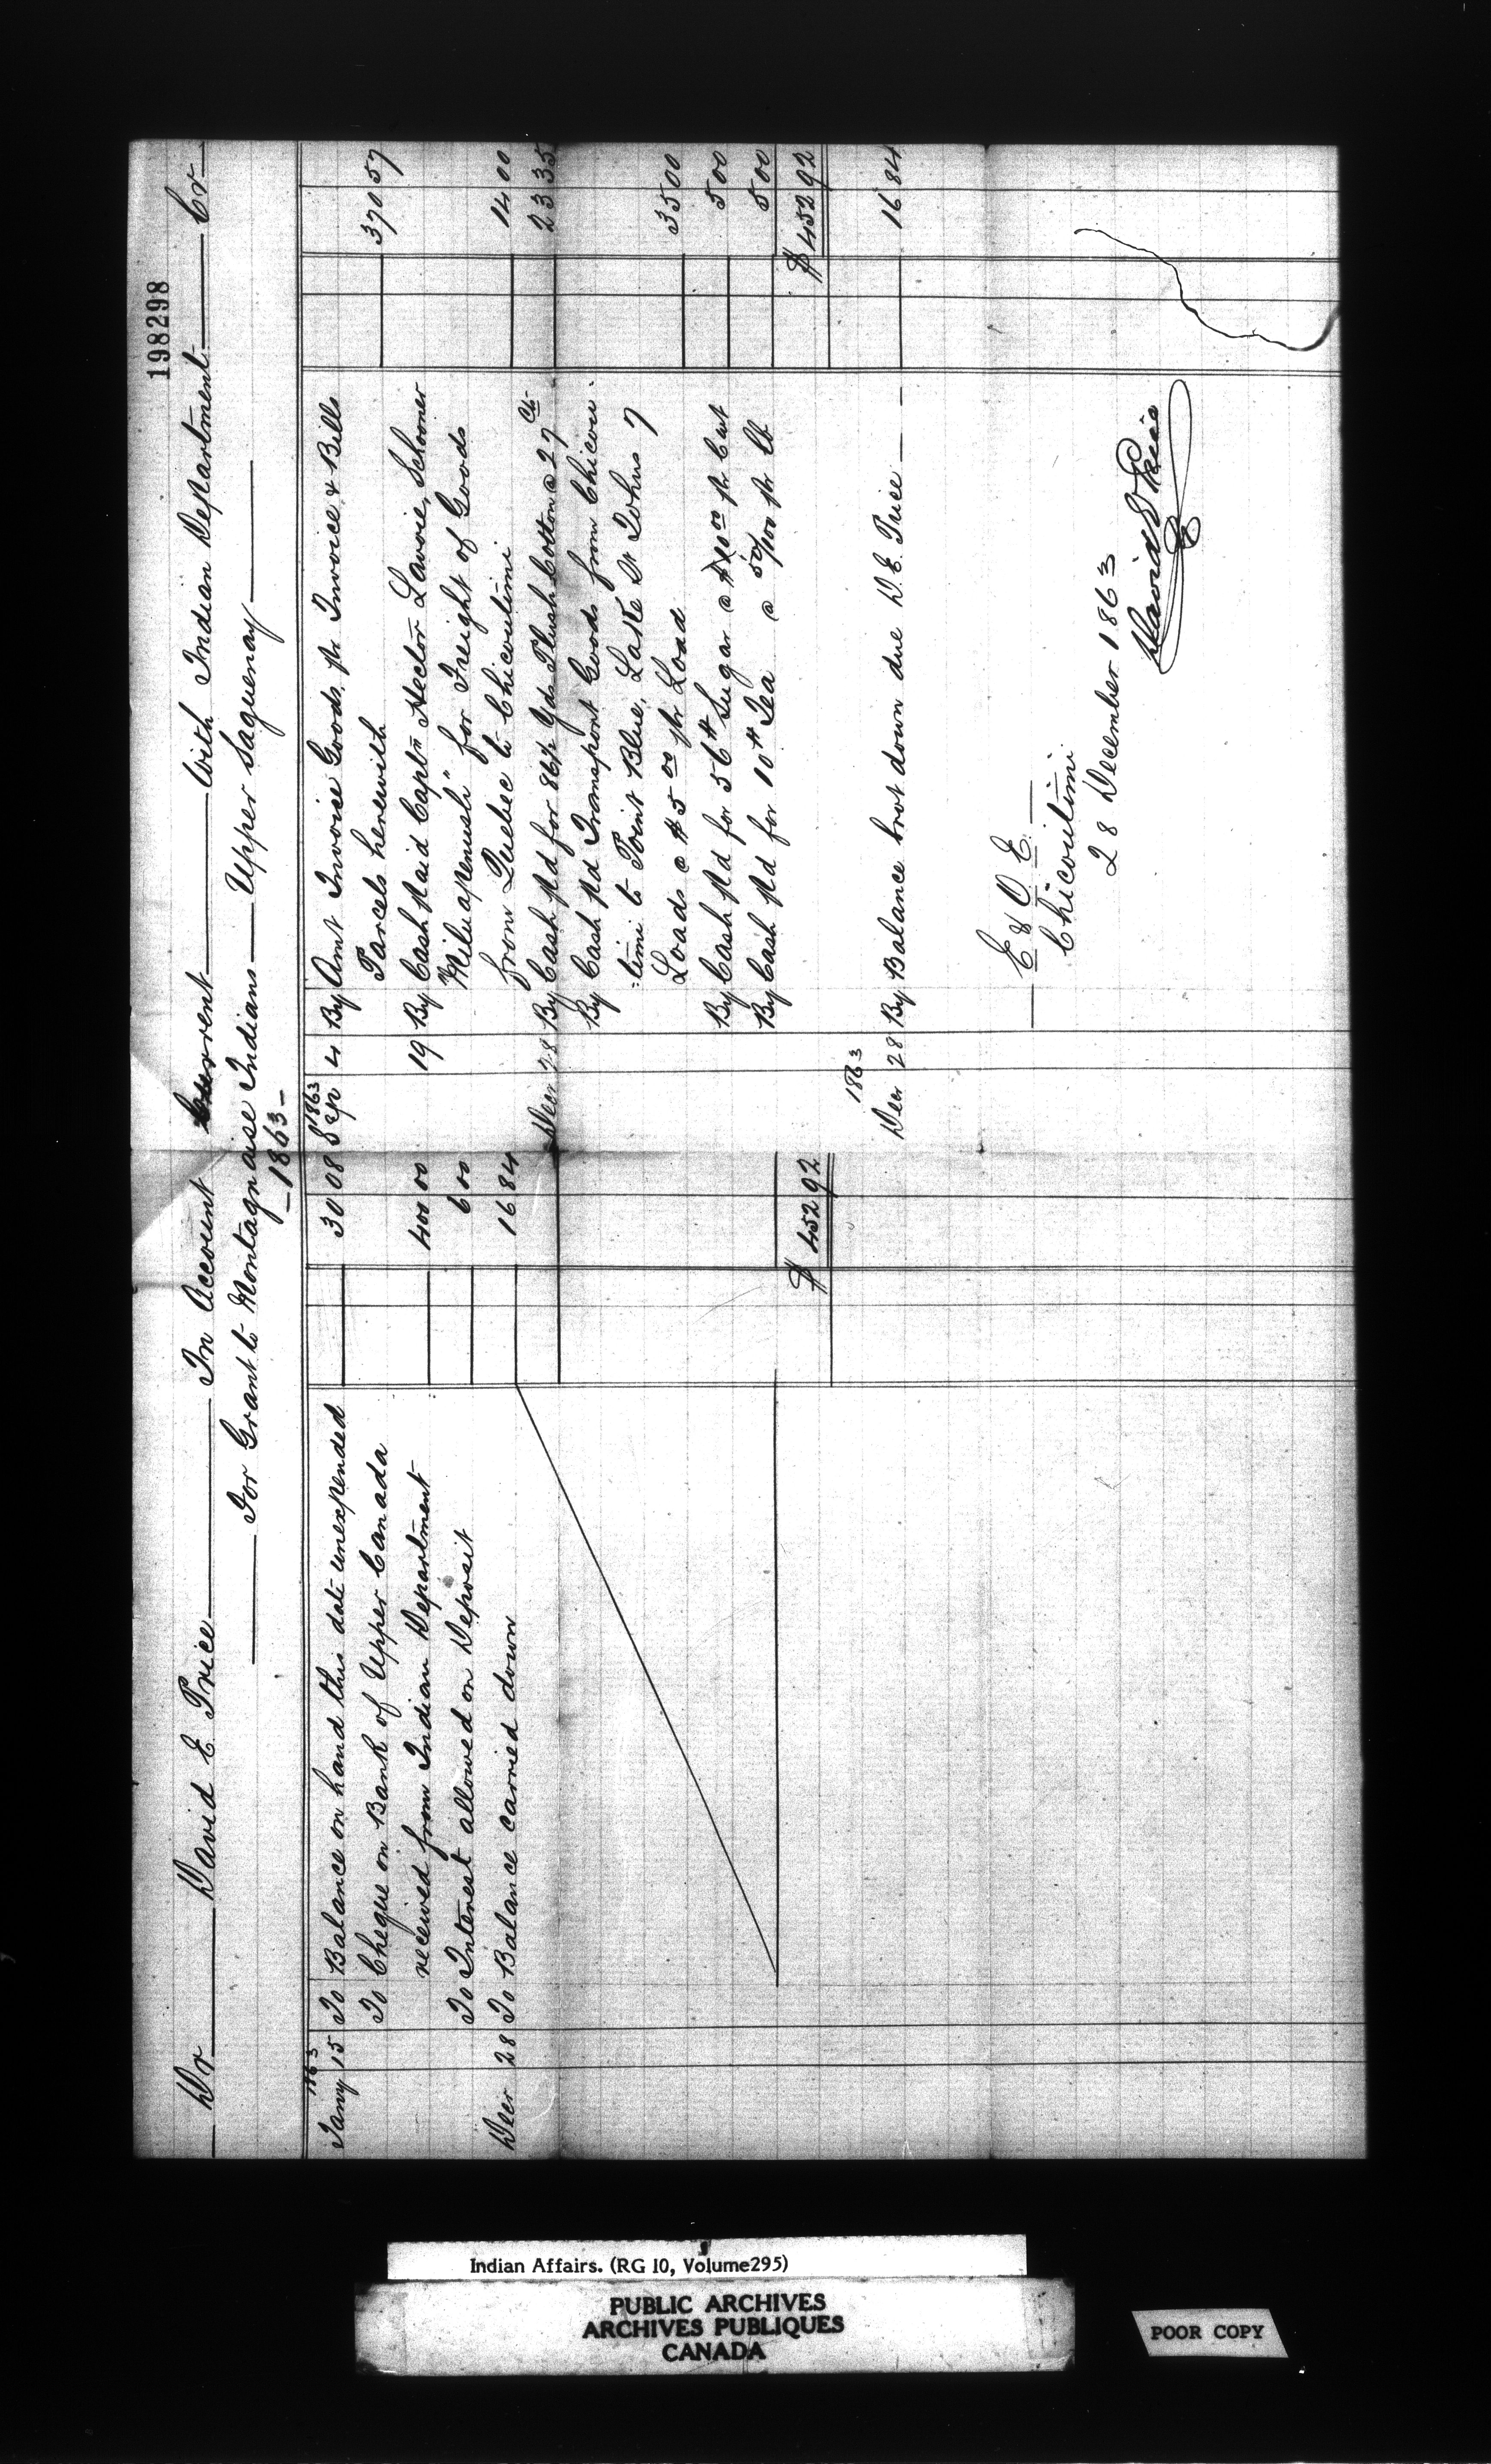 198298
Dr David E Price In Account Current With Indian Department Cr
For Grant to Montagnaise Indians Upper Saguenay
1863
1863
Jany 15 To Balance on hand this date unexpended 30 08
To Cheque on Bank of Upper Canada
received from Indian Department 400 00
To Interest allowed on Deposit 6 00
Decr 28 To Balance carried down 16 84
$ 452 92
1863
Sep 4 By Amt Invoice Goods, pr Invoice & Bills
Parcels herewith 370 57
19 By Cash paid Captn Hector Lavoie, Schooner
" for Freight of Goods
from Quebec to Chicoutimi 14 00
Decr 28 By Cash pd for 86½ Yds Plush Cotton @ 27 Cts 23 35
By Cash pd Transport Goods from Chicou
=timi to Point Blue, Lake St Johns 7
Loads @ $5 00 pr Load 35 00
By Cash pd for 56 # Sugar @ $10 00 pr Cwt 5 00
By Cash pd for 10 # Tea @ 50/100 pr lb 5 00
$ 452 92
1863
Decr 28 By Balance brot down due D. E. Price 16 84
E & O E.
Chicoutimi
28 December 1863
David E Price
Indian Affairs. (RG 10, Volume295)
PUBLIC ARCHIVES
ARCHIVES PUBLIQUES
CANADA
POOR COPY